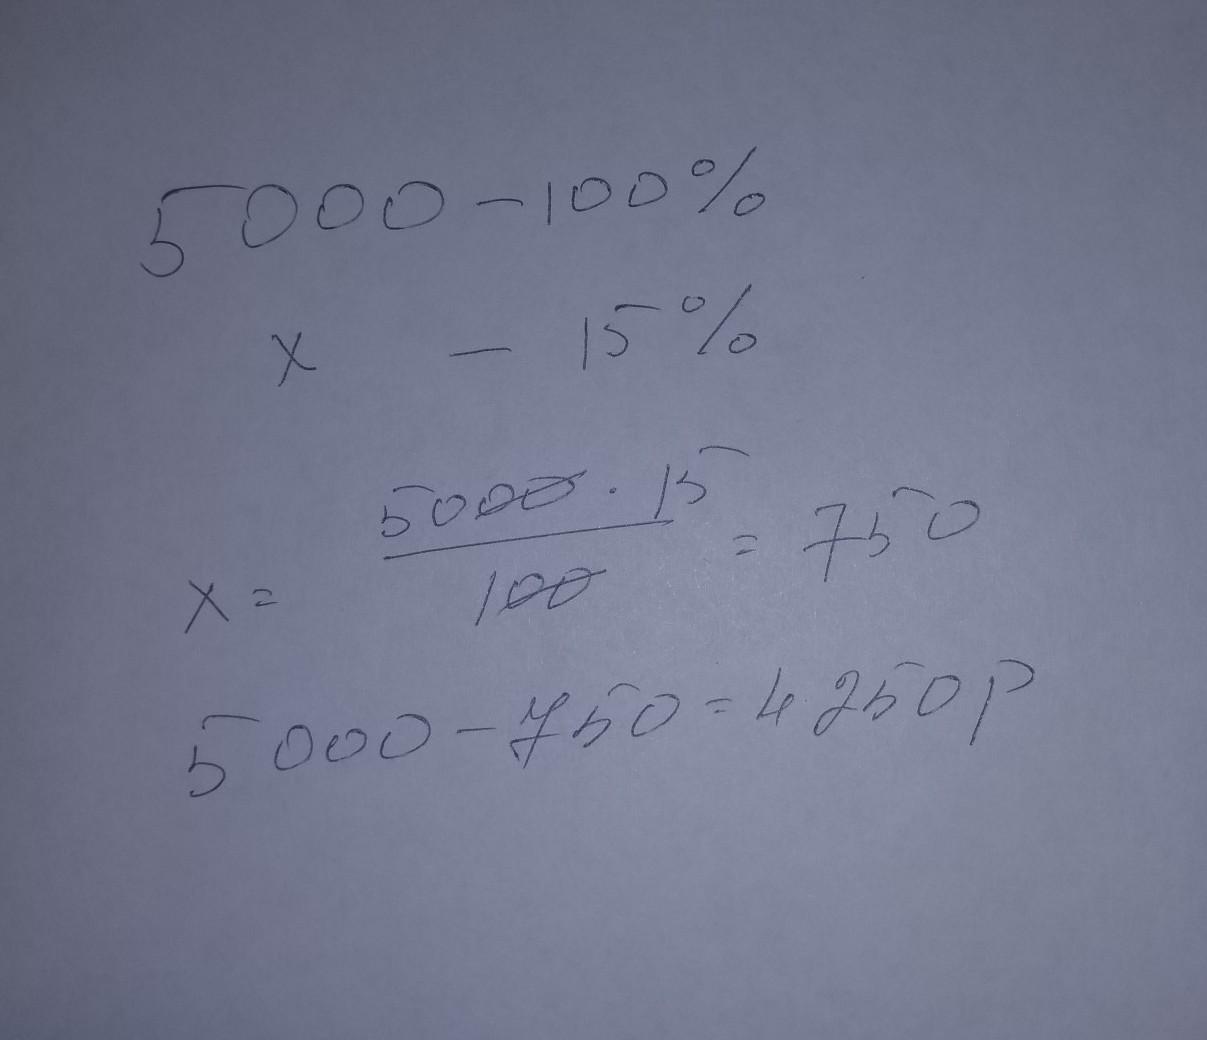 5000 - 100%
x - 15%
x = 5000 · 15 / 100 = 750
5000 - 750 = 4250р